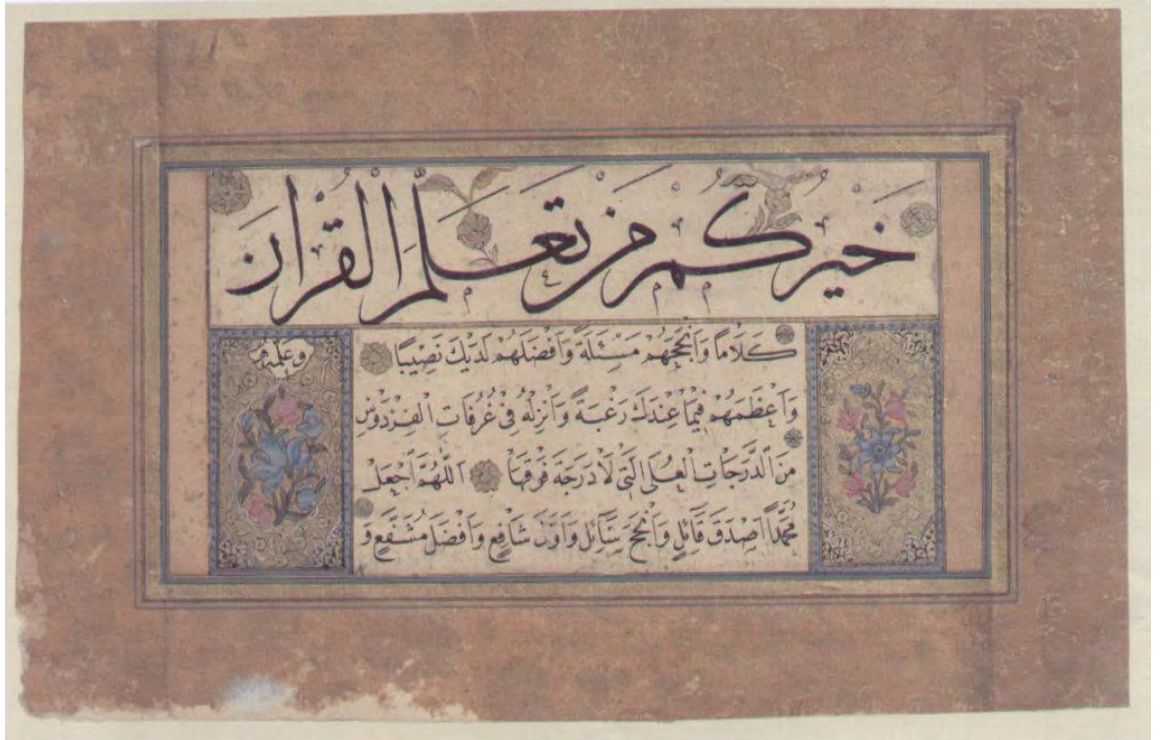 خَيْرُكُمْ مَنْ تَعَلَّمَ الْقُرْآنَ
وعلمه
كَلَامًا وَأَنْجَحَهُمْ مَسْئَلَةً وَأَفْضَلَهُمْ لَدَيْكَ نَصِيبًا
وَأَعْظَمَهُمْ فِيمَا عِنْدَكَ رَغْبَةً وَأَنْزِلْهُ فِي غُرُفَاتِ الْفِرْدَوْسِ
مِنَ الدَّرَجَاتِ الْعُلَى الَّتِي لَا دَرَجَةَ فَوْقَهَا اَللّٰهُمَّ اجْعَلْ
مُحَمَّدًا أَصْدَقَ قَائِلٍ وَأَنْجَحَ سَائِلٍ وَأَوَّلَ شَافِعٍ وَأَفْضَلَ مُشَفَّعٍ وَ